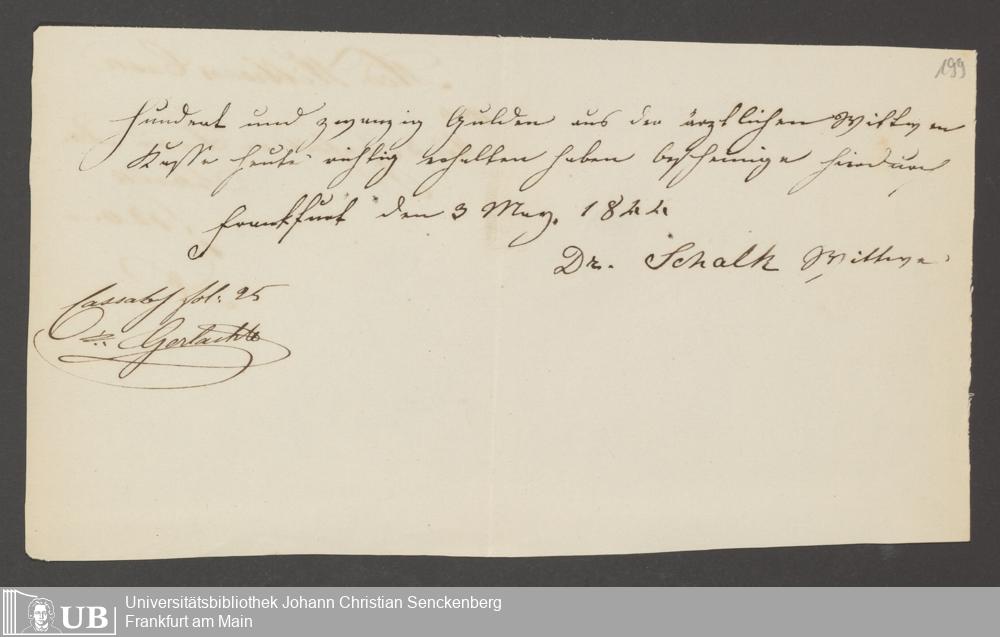 199
Hundert und zwanzig Gulden aus der ärztlichen Wittwen
Kasse heute richtig erhalten haben bescheinige hierdurch
Frankfurt den 3 May. 1844
Dr. Schalk Wittwe.
fol: 25
Gerlach
UB
Universitätsbibliothek Johann Christian Senckenberg
Frankfurt am Main